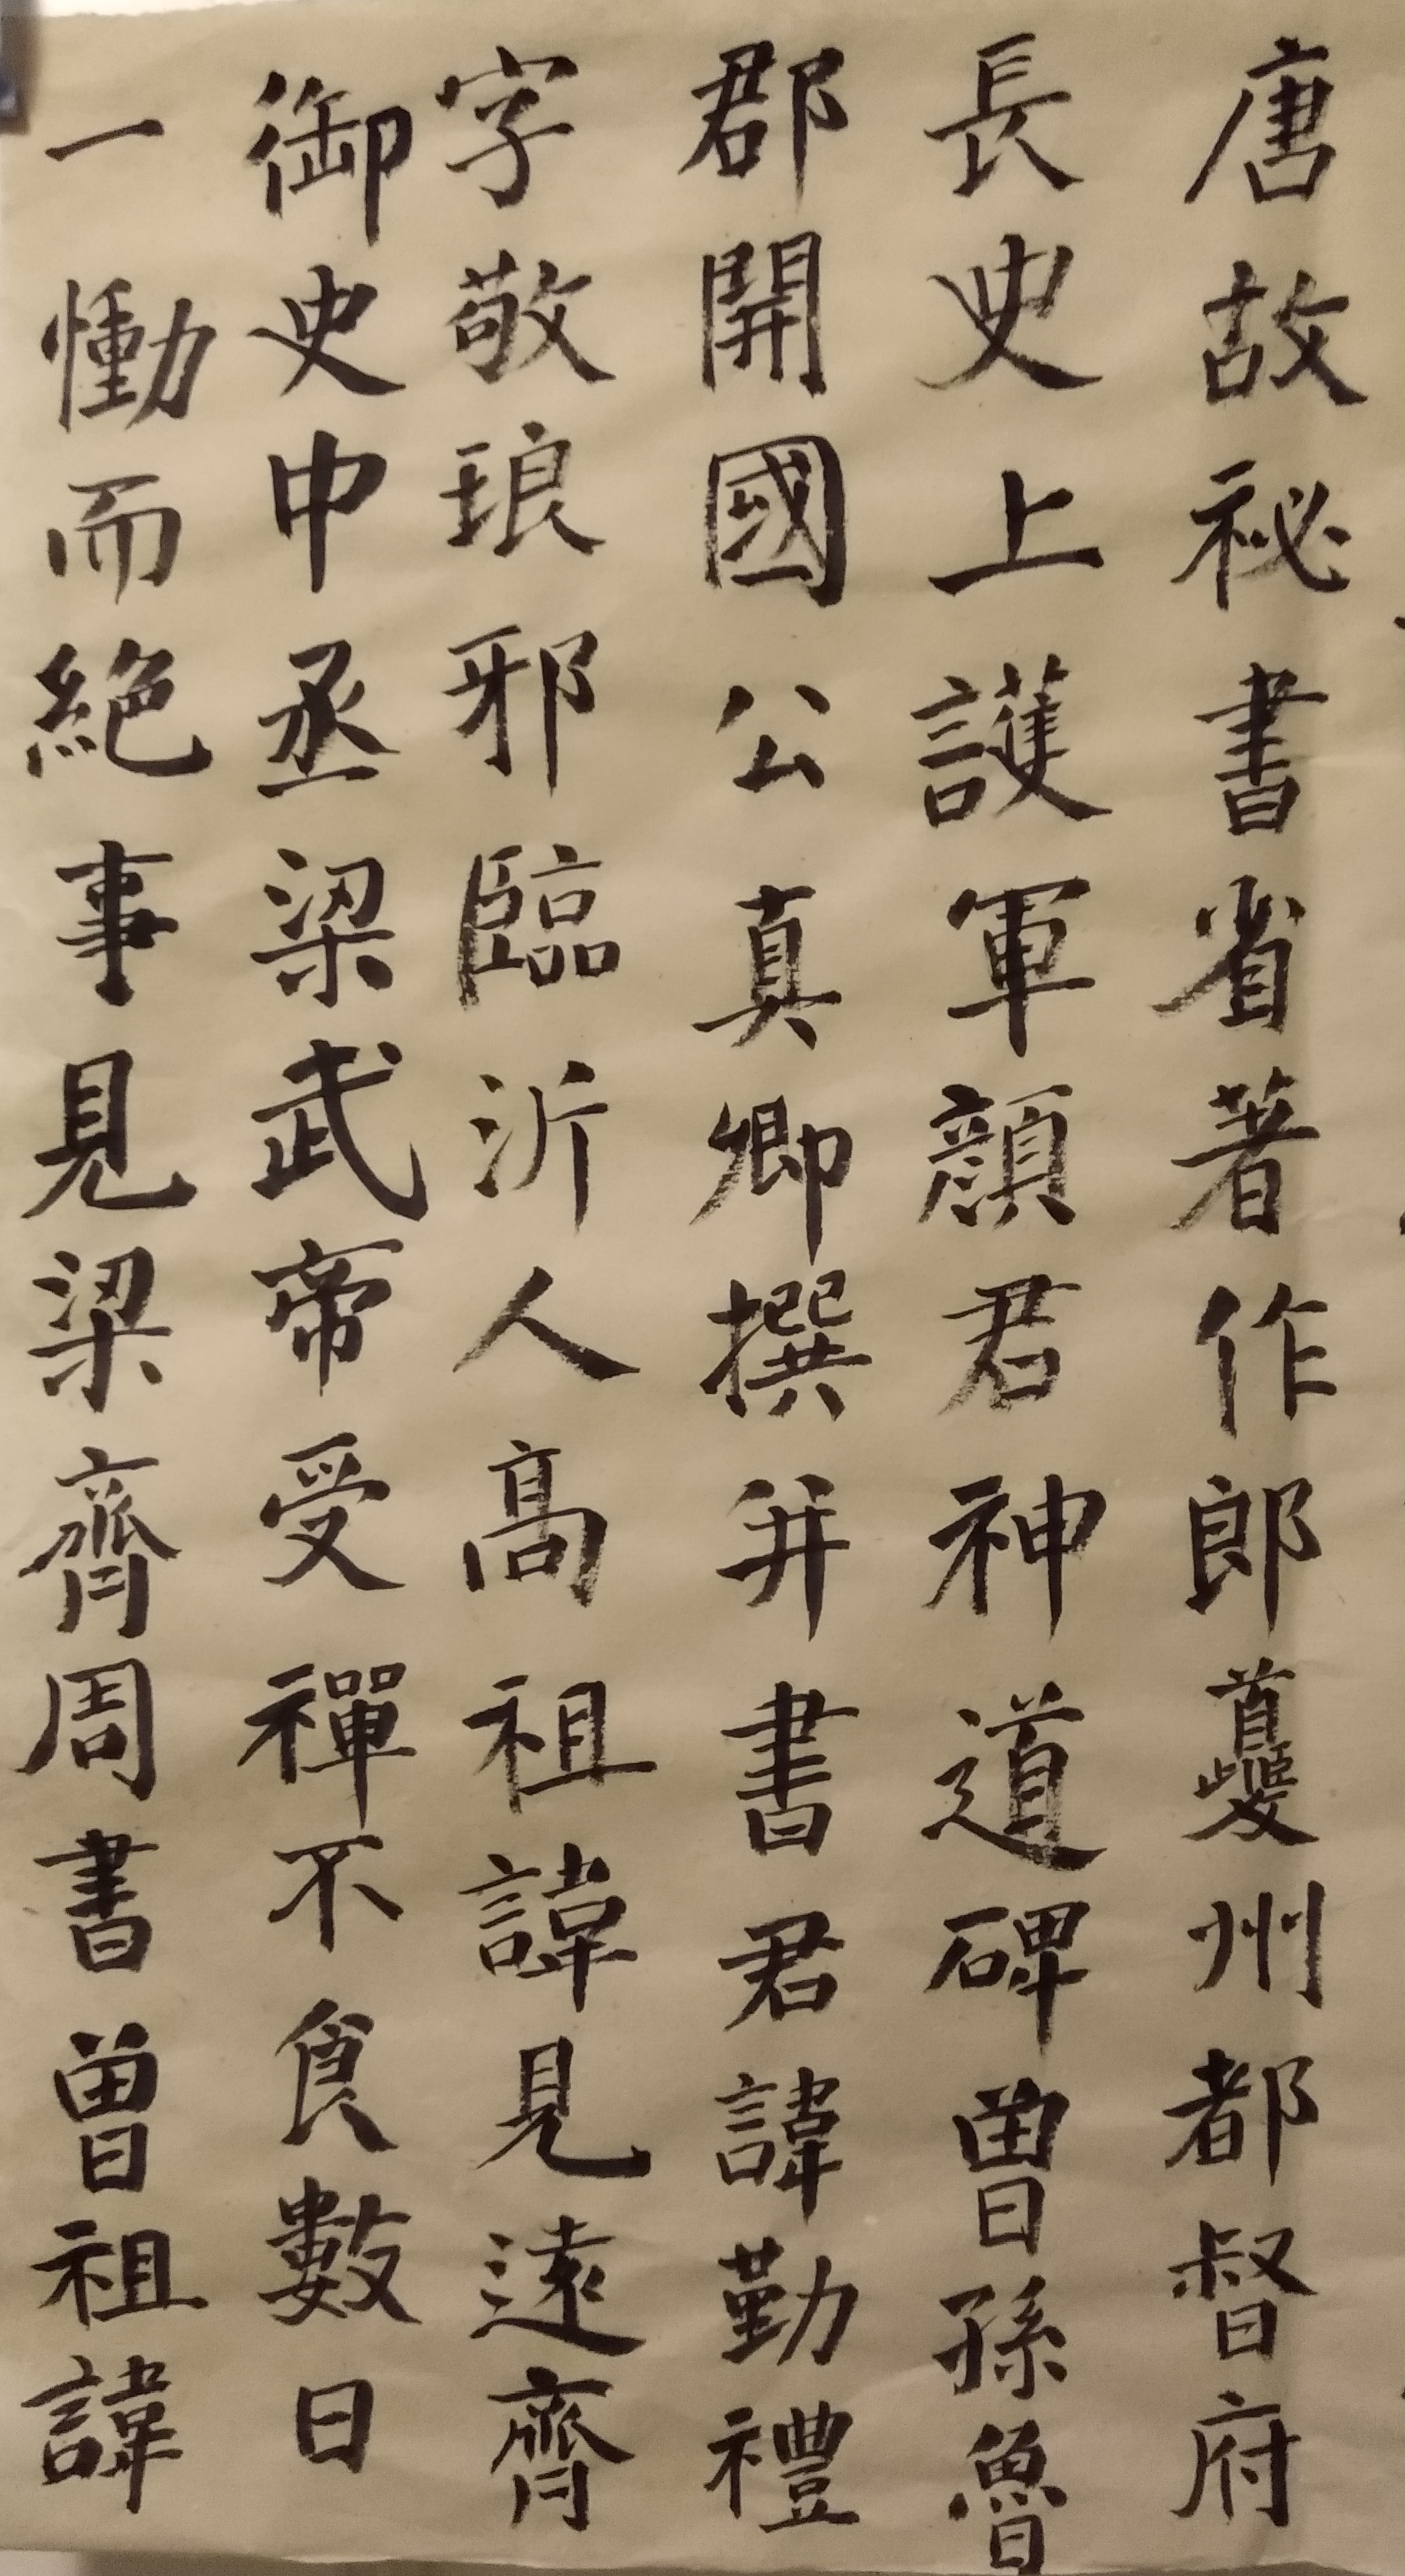 唐故祕書省著作郎夔州都督府
長史上護軍顔君神道碑曾孫魯
郡開國公真卿撰并書君諱勤禮
字敬琅邪臨沂人高祖諱見遠齊
御史中丞梁武帝受禪不食數日
一慟而絶事見梁齊周書曾祖諱